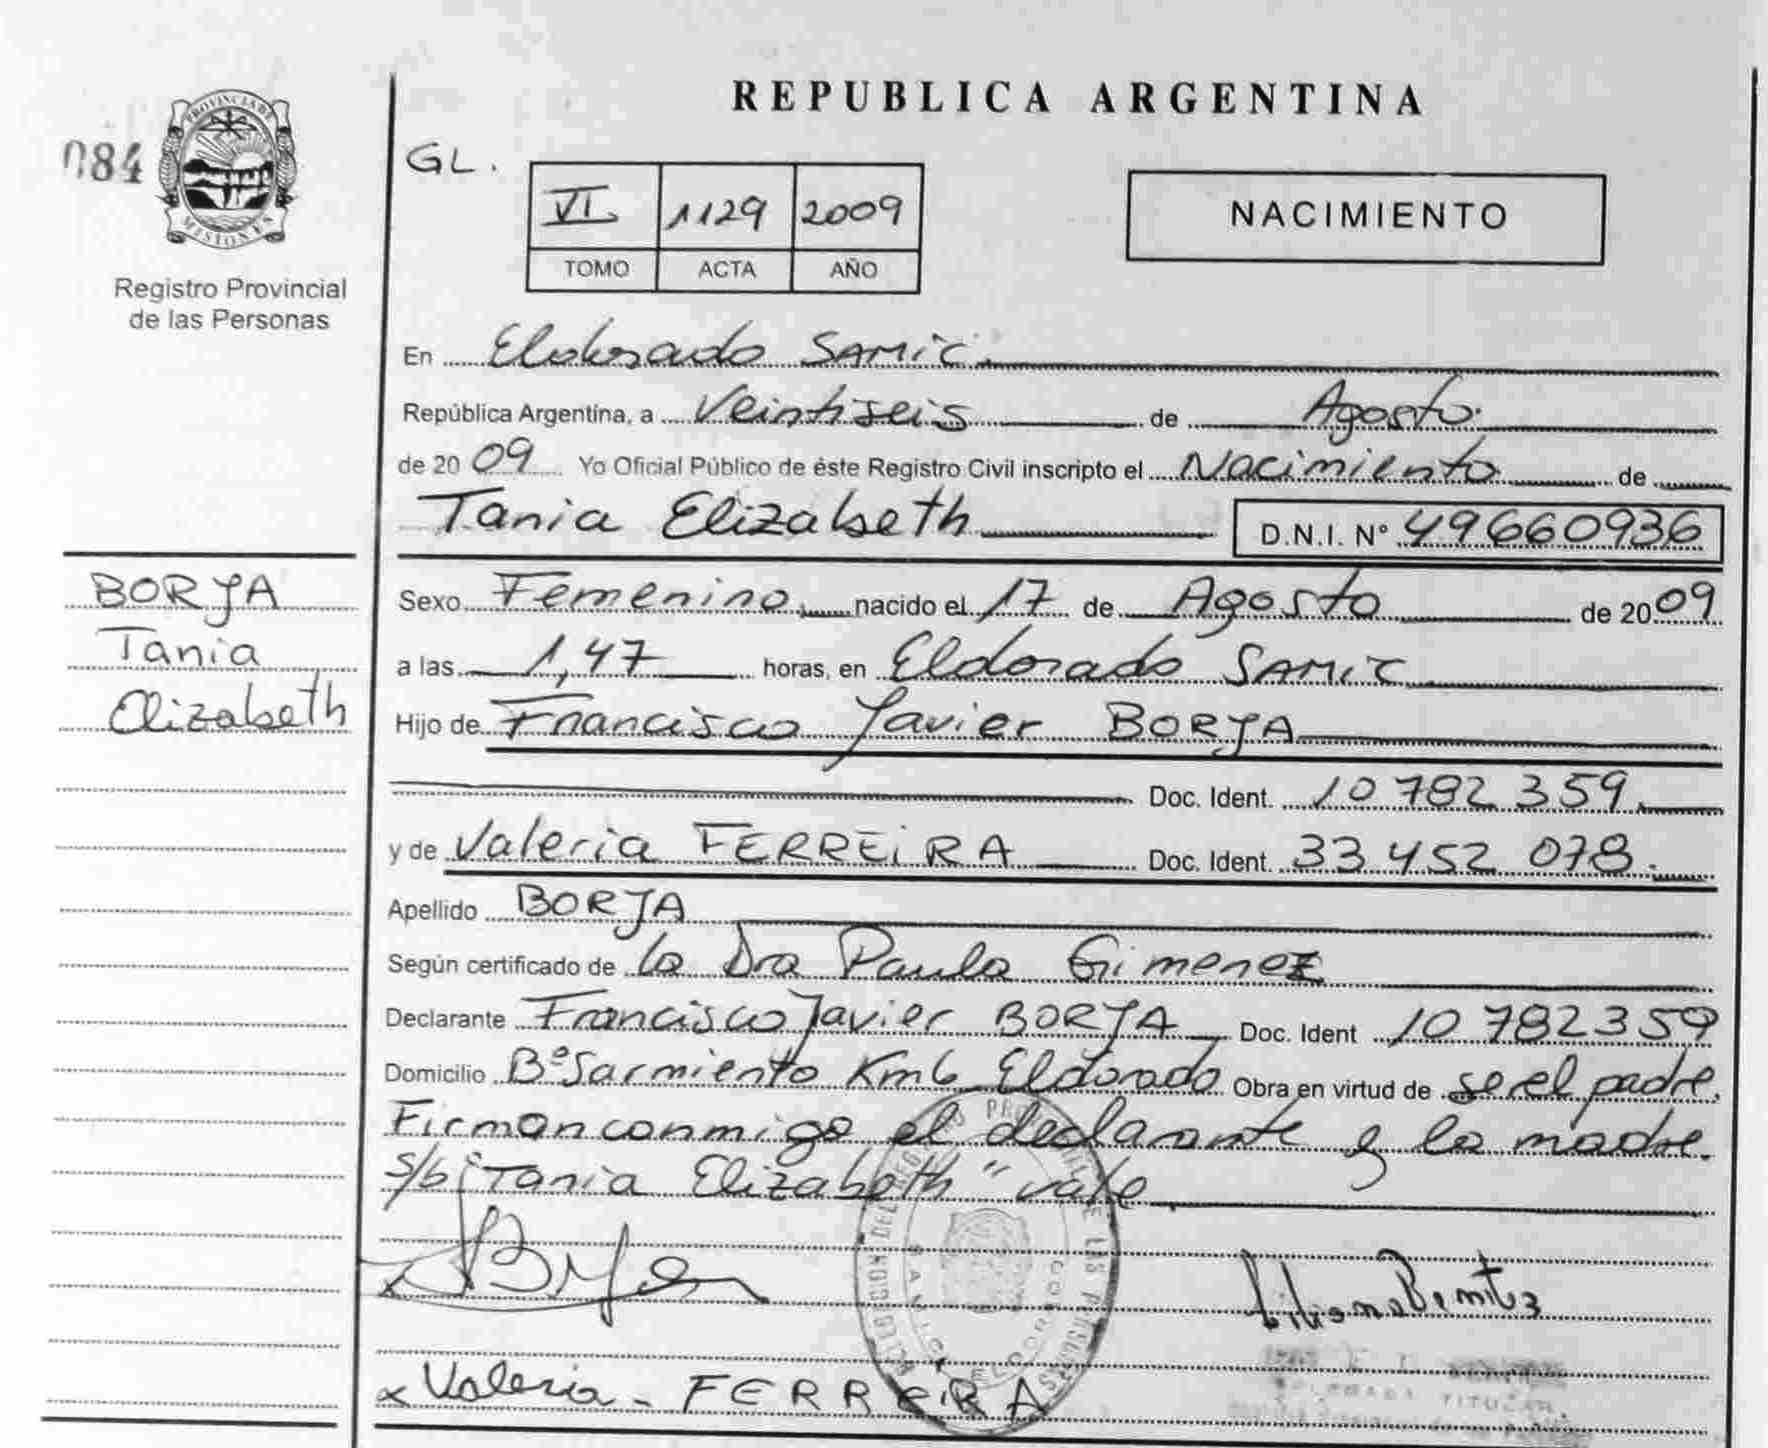 REPUBLICA ARGENTINA
084
PROVINCIA DE
MISIONES
Registro Provincial
de las Personas
GL.
VI 1129 2009
TOMO ACTA AÑO
NACIMIENTO
En Eldorado SAMIC
República Argentina, a Veintiseis de Agosto
de 2009 Yo Oficial Público de éste Registro Civil inscripto el Nacimiento de
Tania Elizabeth D.N.I. Nº 49660936
BORJA
Tania
Elizabeth
Sexo Femenino nacido el 17 de Agosto de 2009
a las 1,47 horas, en Eldorado SAMIC
Hijo de Francisco Javier BORJA
Doc. Ident. 10 782 359
y de Valeria FERREIRA Doc. Ident. 33 452 078.
Apellido BORJA
Según certificado de la Dra Paula Gimenez
Declarante Francisco Javier BORJA Doc. Ident 10 782359
Domicilio Bº Sarmiento Km6 Eldorado Obra en virtud de ser el padre.
Firman conmigo el declarante y la madre.
s/b "Tania Elizabeth" vale
x Valeria - FERREIRA
TITULAR